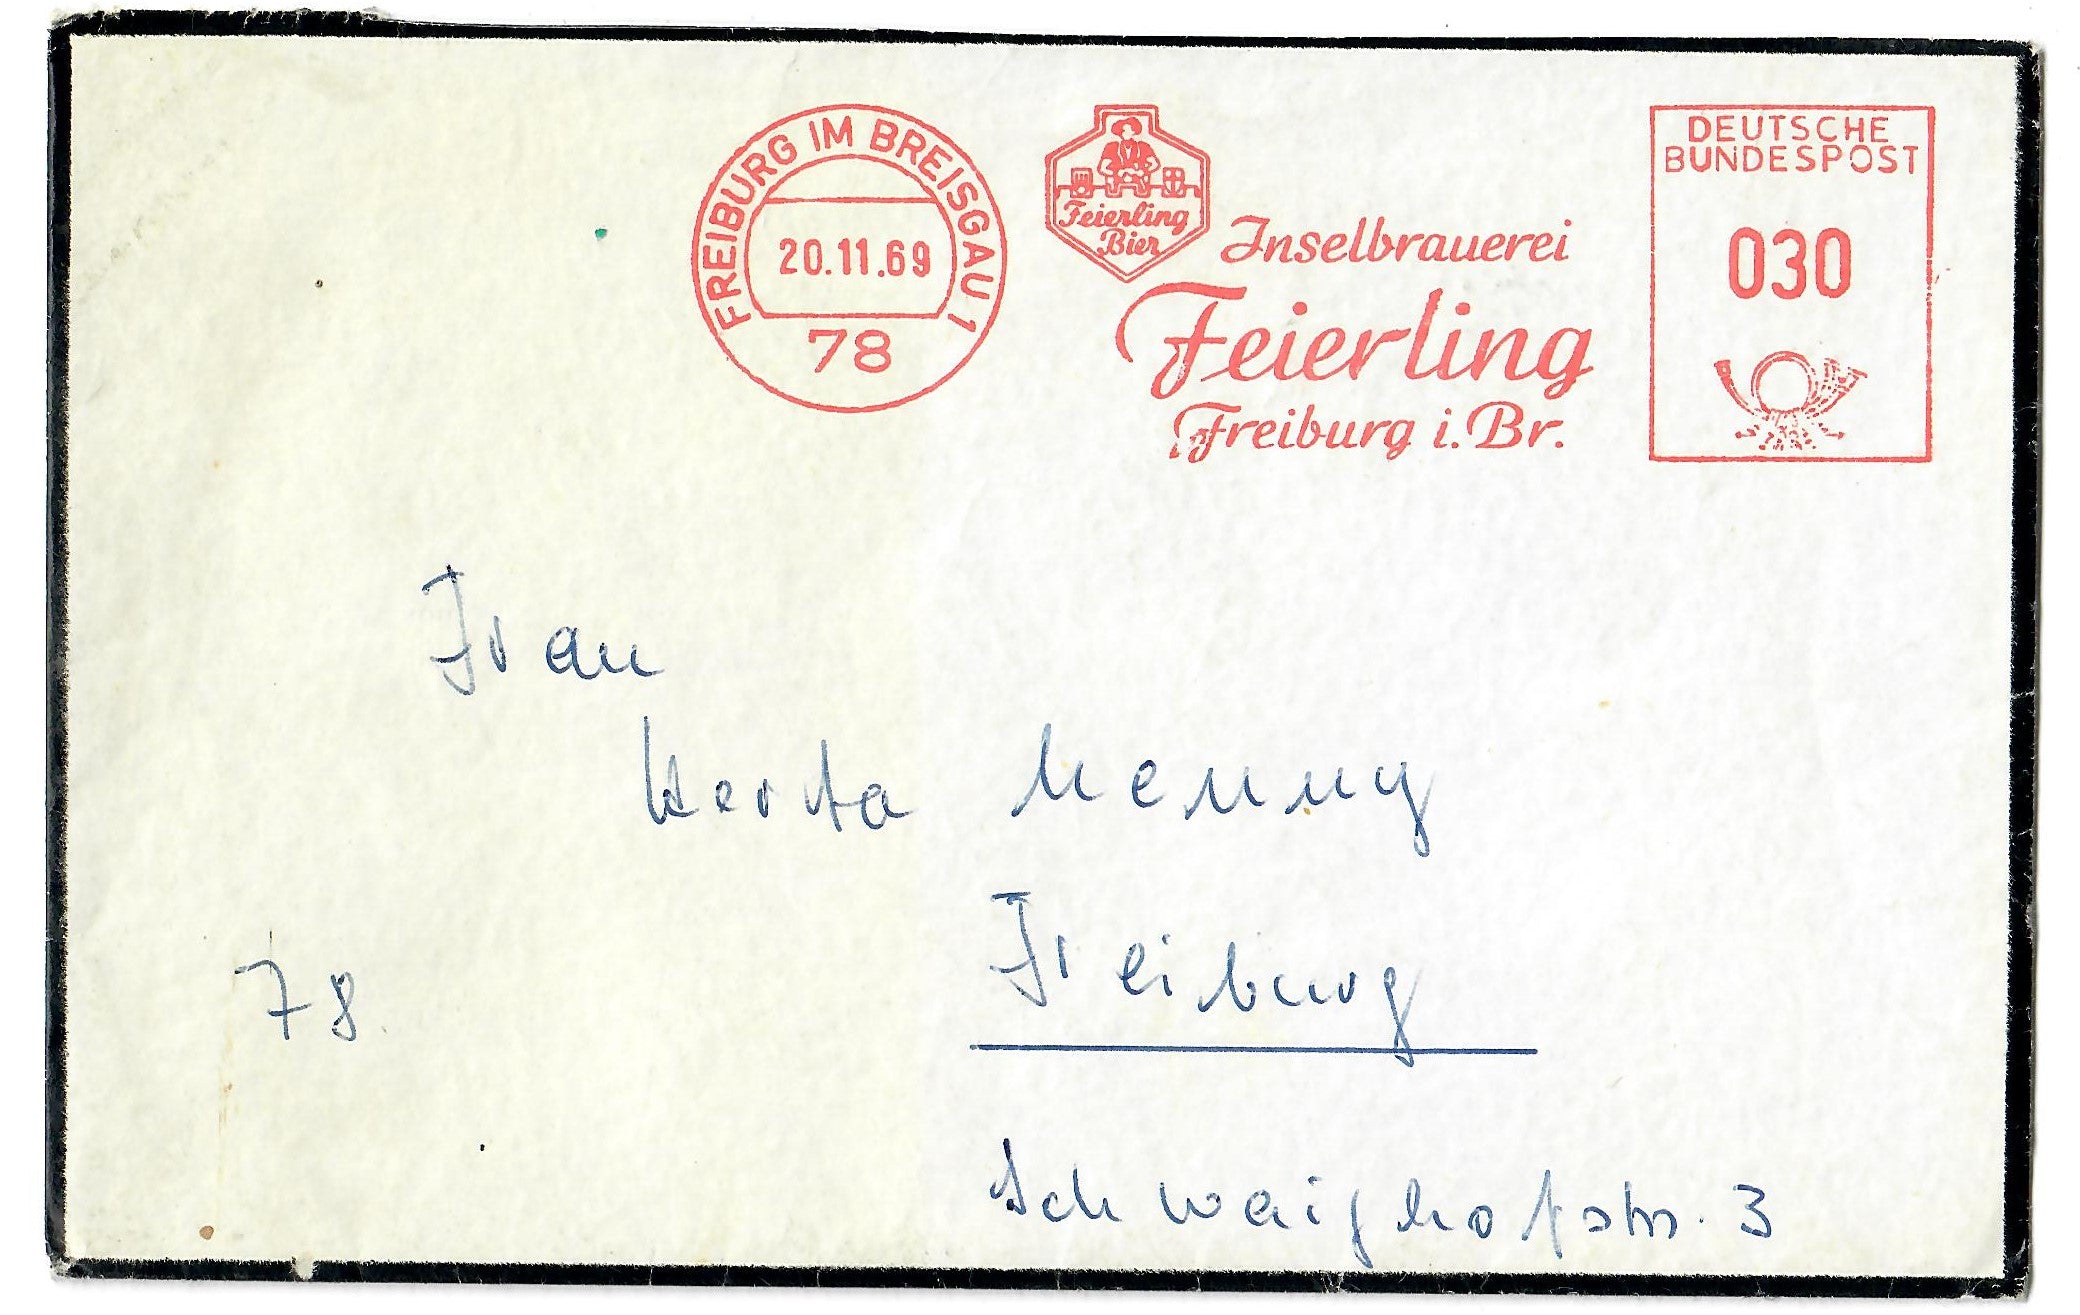 FREIBURG IM BREISGAU 1
20.11.69
78
Feierling
Bier
Inselbrauerei
Feierling
Freiburg i. Br.
DEUTSCHE
BUNDESPOST
030
Frau
Herta Menny
78 Freiburg
Schwaighofstr. 3